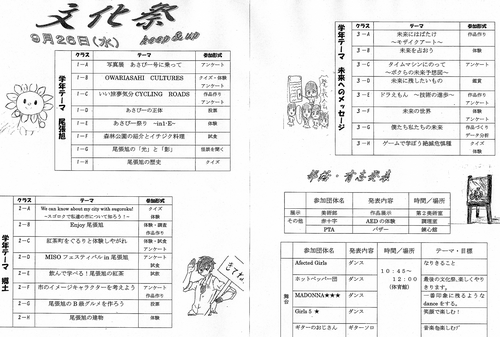 文化祭
9月26日(水) keep & up
学年テーマ 尾張旭
クラス テーマ 参加形式
1-A 写真展 あさぴー号に乗って アンケート
1-B OWARIASAHI CULTURES クイズ・体験 アンケート
1-C いい旅夢気分CYCLING ROADS 作品作り アンケート
1-D あさぴーの正体 投票
1-E あさぴー祭り -in1-E- 体験
1-F 森林公園の紹介とイチジク料理 試食
1-G 尾張旭の「光」と「影」 怪談を聞く
1-H 尾張旭の歴史 クイズ
学年テーマ 郷土
クラス テーマ 参加形式
2-A We can know about my city with sugoroku!
~スゴロクで私達の市について知ろう!~ クイズ 体験
2-B Enjoy 尾張旭 体験・調査 作品作り
2-C 紅茶町をぐるりと体験しやがれ 体験・試食 アンケート
2-D MISOフェスティバル in 尾張旭 試食 アンケート
2-E 飲んで学べる!尾張旭の紅茶 試食
2-F 市のイメージキャラクターを考えよう アンケート 作品作り
2-G 尾張旭のB級グルメを作ろう 投票
2-H 尾張旭の建物 体験
学年テーマ 未来へのメッセージ
クラス テーマ 参加形式
3-A 未来にはばたけ
~モザイクアート~ 作品作り
3-B 未来を占おう 体験
3-C タイムマシンにのって
~ボクらの未来予想図~ アンケート
3-D 未来に残したいもの 鑑賞
3-E ドラえもん ~技術の進歩~ 作品作り アンケート
3-F 未来の世界 体験 アンケート
3-G 僕たち私たちの未来 作品作り データ分析
3-H ゲームで学ぼう絶滅危惧種 クイズ 体験
参加団体名 発表内容 時間/場所
展示 美術部 作品展示 第2美術室
その他 赤十字 AEDの体験 調理室
PTA バザー
参加団体名 発表内容 時間/場所 テーマ・目標
舞台
Afected Girls ダンス なりきること
10:45~12:00 (体育館)
ホットペッパー団 ダンス 最後の文化祭、楽しくやりきります。
MADONNA★★★ ダンス 一番印象に残るようなdanceをする。
Girls 5 ★ ダンス 笑顔で楽しむ!
ギターのおじさん ギターソロ 音楽を楽しむ!